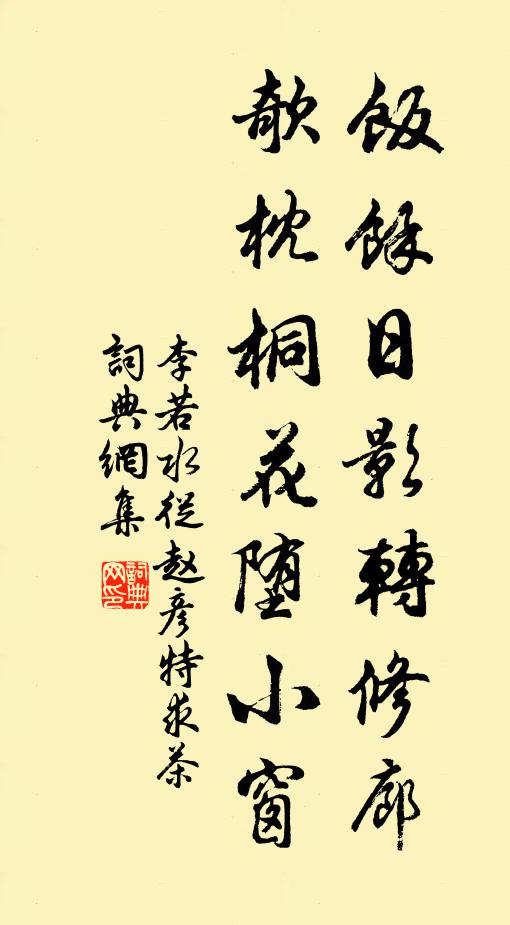 飯餘日影轉修廊
欹枕桐花堕小窗
李若水從赵彥特求茶
詞典網集
詞典網印